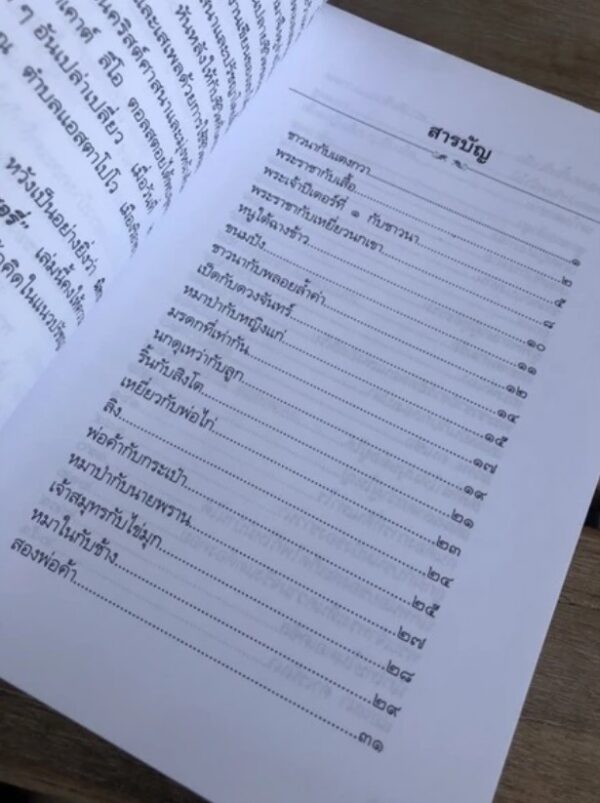 นคริสต์ศาสนาและ
และเสเพลด้วยการใช้
หันหลังให้กับ
เคาต์ ลีโอ ตอลสตอย
ๆ อันเปล่าเปลี่ยว เมื่อวันที่
ณ ตำบลแอสตาโปโว เมื่อ
หวังเป็นอย่างยิ่งว่า
เล่มนี้คงให้
คิดในแนว
สารบัญ
ชาวนากับแตงกวา..........๑
พระราชากับเสื้อ..........๒
พระเจ้าปีเตอร์ที่ ๑ กับชาวนา..........๕
พระราชากับเหยี่ยวนกเขา..........๘
หนูใต้ฉางข้าว..........๑๐
ขนมปัง..........๑๑
ชาวนากับพลอยล้ำค่า..........๑๒
เป็ดกับดวงจันทร์..........๑๔
หมาป่ากับหญิงแก่..........๑๕
มรดกที่เท่ากัน..........๑๗
นกดุเหว่ากับลูก..........๑๙
ริ้นกับสิงโต..........๒๑
เหยี่ยวกับพ่อไก่..........๒๓
ลิง..........๒๔
พ่อค้ากับกระเป๋า..........๒๕
หมาป่ากับนายพราน..........๒๗
เจ้าสมุทรกับไข่มุก..........๒๘
หมาในกับช้าง..........๒๙
สองพ่อค้า..........๓๑